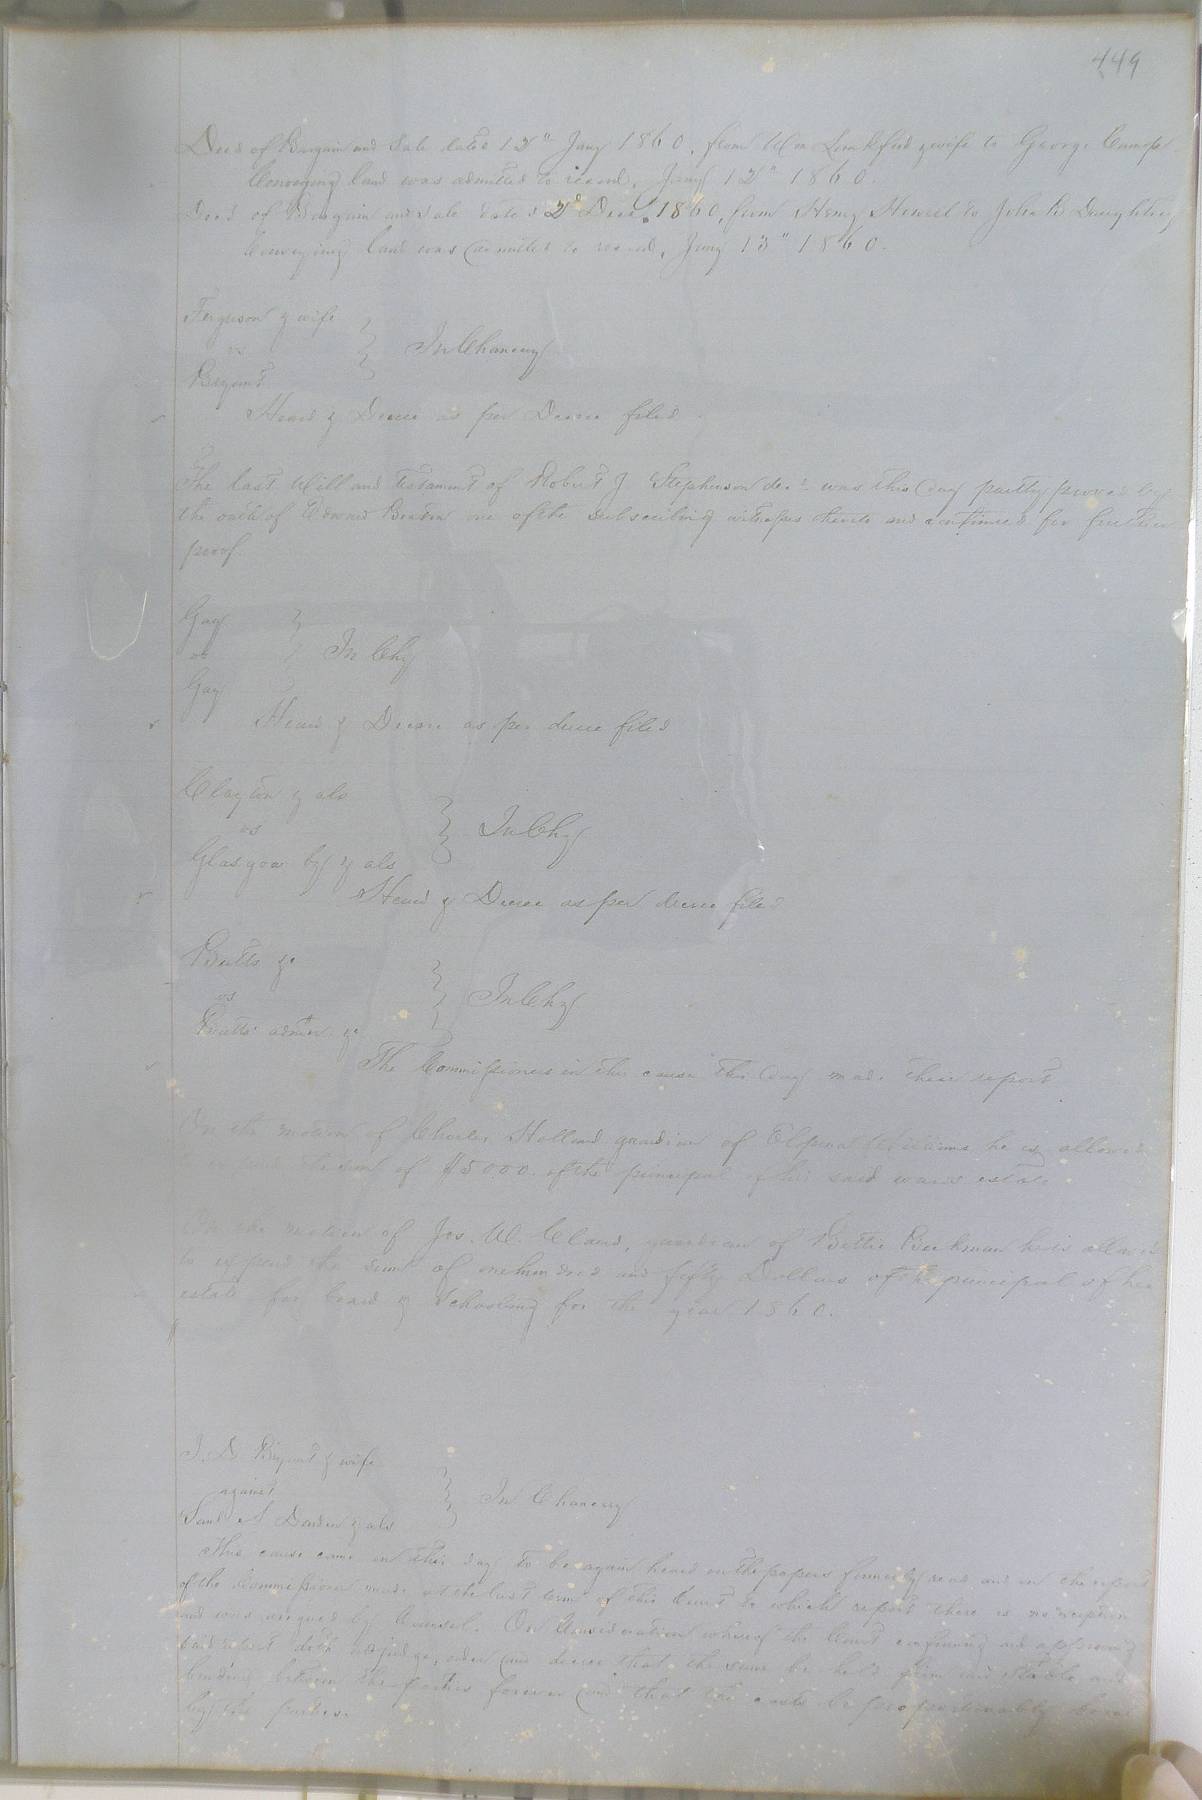 449
Deed of Bargain and Sale dated 12" Jany 1860, from Wm Lankford & wife to George
Conveying land was admitted to record, Jany 12" 1860.
Deed of Bargain and Sale dated 2d Decr. 1860, from Henry Howell to John B Daughtrey
Conveying land was admitted to record, Jany 13" 1860.
Ferguson & wife
vs } In Chancery
Bryant
Heard & Decree as per Decree filed
The last Will and Testament of Robert J Stephenson decd was this day partly proved by
the oath of one of the subscribing witnesses thereto and continued for further
proof.
Gay
vs } In Chy
Gay
Heard & Decree as per decree filed
Clayton & als
vs } In Chy
Glasgow & als
Heard & Decree as per decree filed
Butts &c
vs } In Chy
Butts' admr &c
The Commissioners in this cause this day made their report
On the motion of Charles Holland guardian of Williams he is allowed
the sum of $50.00 of the principal of his said wards estate
On the motion of Jos. W. Claud, guardian of Bettie Beckman he is allowed
to expend the sum of one hundred and fifty Dollars of the principal of her
estate for board & Schooling for the year 1860.
J. D. Bryant & wife
against } In Chancery
Saml Darden & als
This cause came on this day to be again heard on the papers formerly read and on the report
of the Commissioner made at the last term of this Court to which report there is no exception
and was argued by Counsel. On Consideration whereof the Court confirming and approving
said report doth adjudge, order and decree that the same be held firm and stable and
binding between the parties forever and that the costs be proportionably borne
by the parties.